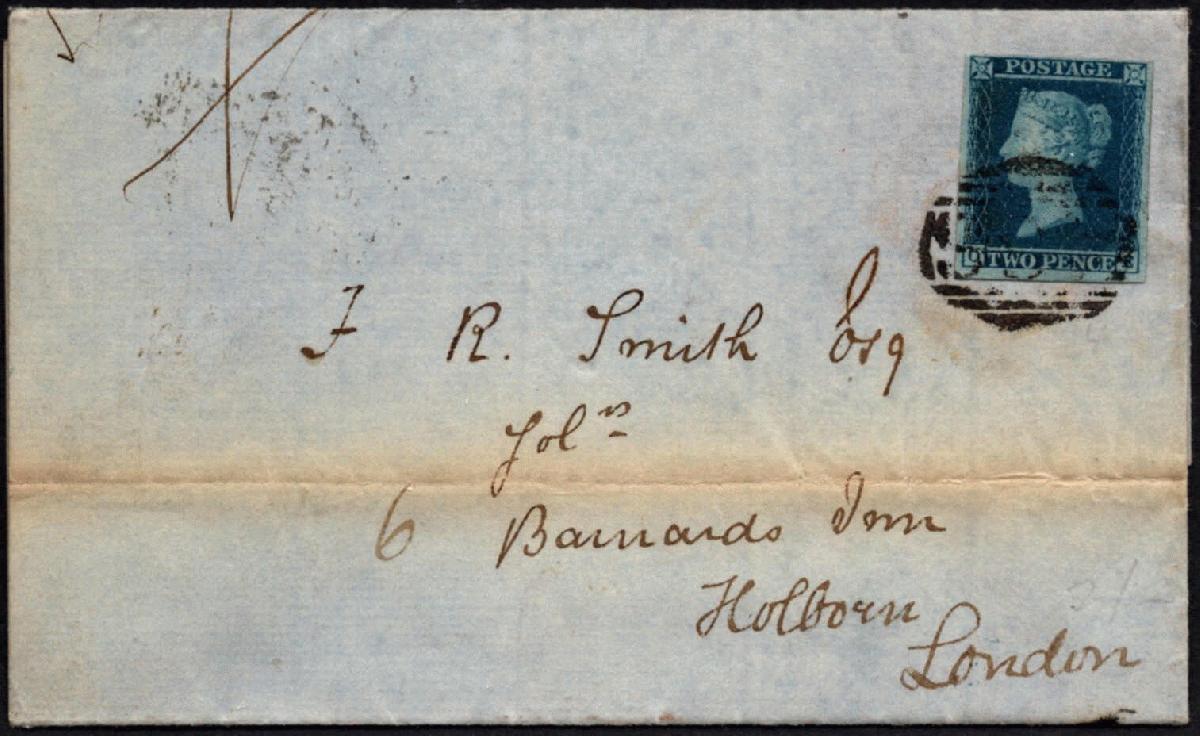 POSTAGE
TWO PENCE
F R. Smith Esq
Solrs
6 Barnards Inn
Holborn
London